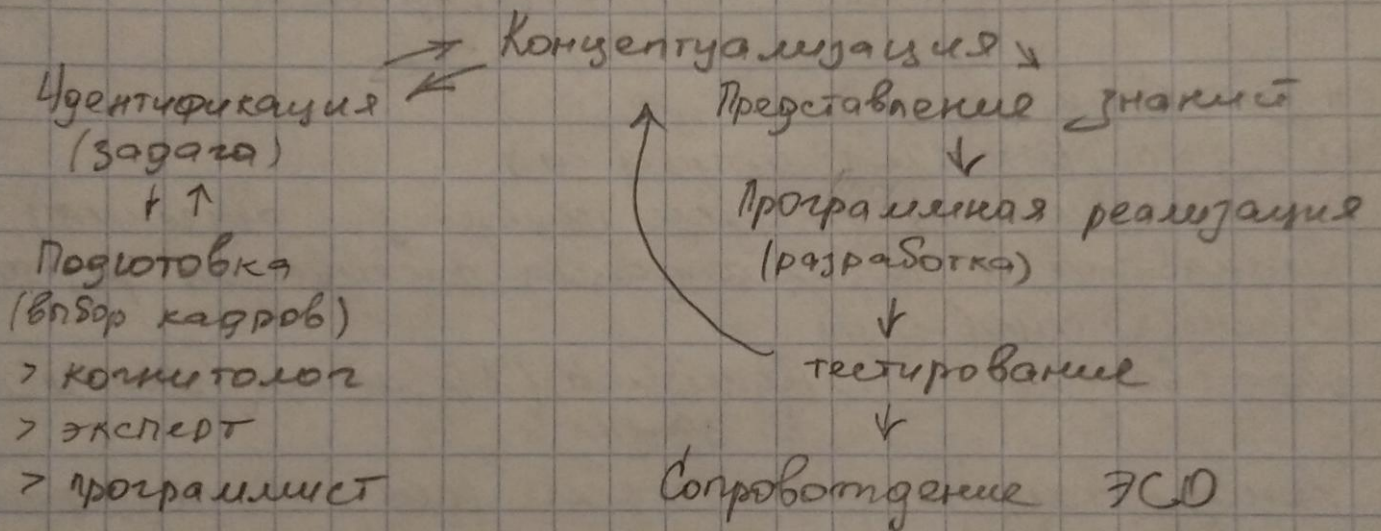 Концептуализация
Идентификация
(задача)
Подготовка
(выбор кадров)
> когнитолог
> эксперт
> программист
Представление знаний
Программная реализация
(разработка)
тестирование
Сопровождение ЭСО